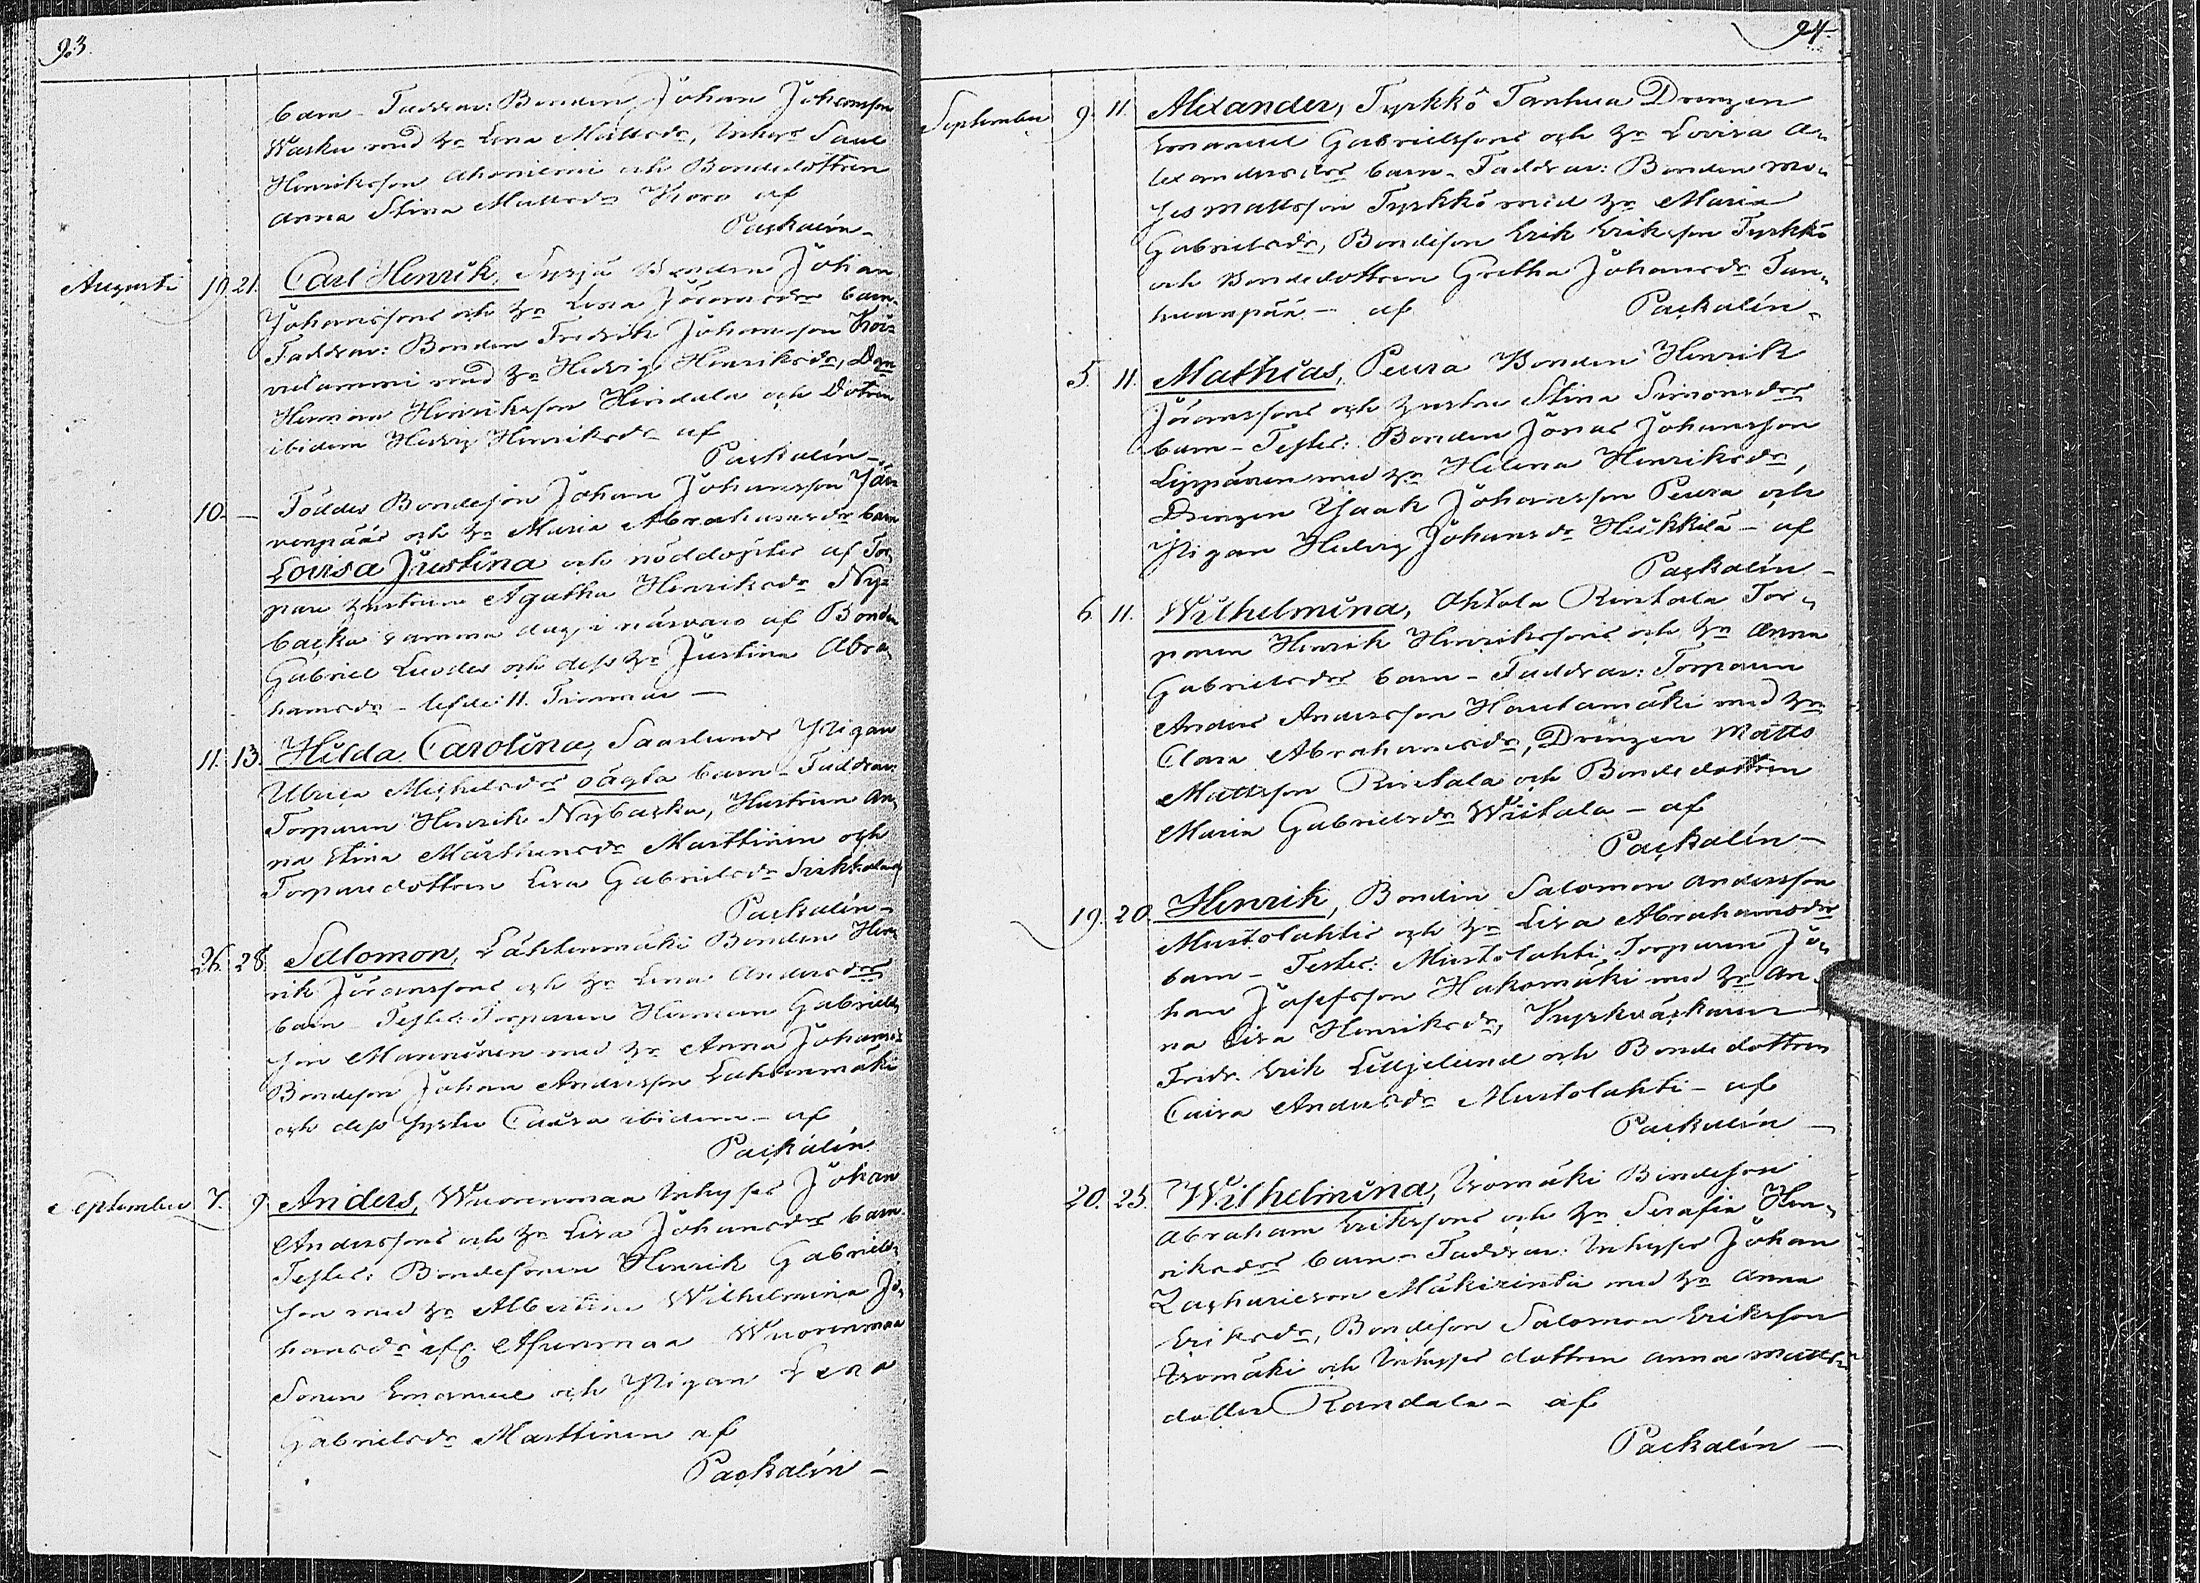 93.
barn. Faddrar: Bonden Johan Johansson
Wasku med h: Lena Mattsdr, Inhys Saul
Henriksson Ahoniemi och Bondedottren
Anna Stina Mattsdr Koro af
Packalén
Augusti 19. 21. Carl Henrik, Syrjä Bonden Johan
Johanssons och h: Lena Jöransdrs barn.
Faddrar: Bonden Fredrik Johansson Koi-
vulammi med h: Hedvig Henriksdr,
Herman Henriksson Hindala och Dotren
ibidem Hedvig Henriksdr af
Packalén
10. — Föddes Bondeson Johan Johansson Jär-
venpääs och h: Maria Abrahamsdrs barn
Lovisa Justina och nöddoptes af Tor-
pare hustrun Agatha Henriksdr Ny-
backa samma dag, i närvaro af Bonden
Gabriel Luodes och dess h: Justina Abra-
hamsdr - lefde 11. Timmar —
11. 13. Hilda Carolina, Saarlunds Pigan
Ulrica Michelsdrs oägta barn - Faddrar:
Torparen Henrik Nybacka, Hustrun An-
na Stina Mårtensdr Marttinen och
Torparedottren Lisa Gabrielsdr
Packalén
26. 28. Salomon, Lähteenmäki Bonden Hen-
rik Jöranssons och h: Lena Andersdrs
barn - Testes: Torparen Herman Gabriels-
son Manninen med h: Anna Johansdr
Bondeson Johan Andersson Lähteenmäki
och dess syster Caisa ibidem - af
Packalén
September 7. 9. Anders, Wuorenmaa Inhyses Johan
Anderssons och h: Lisa Johansdrs barn
Testes: Bondesonen Henrik Gabriels-
son med h: Albertina Wilhelmina Jo-
hansdr Asunmaa Wuorenmaa
Sonen Emanuel och Pigan Lena
Gabrielsdr Marttinen af
Packalén —
94.
September 9. 11. Alexander, Tyrkkö Tanhua Drengen
Emanuel Gabrielssons och h: Lovisa A-
lexandersdrs barn - Faddrar: Bonden Mo-
ses Mattsson Tyrkkö med h: Maria
Gabrielsdr, Bondeson Erik Eriksson Tyrkkö
och Bondedottren Gretha Johansdr Tan-
huanpää - af Packalén
5. 11. Mathias, Peura Bonden Henrik
Jöranssons och hustru Stina Simonsdrs
barn - Testes: Bonden Jonas Johansson
Lippänen med h: Helena Henriksdr,
Drengen Isaak Johansson Peura och
Pigan Hedvig Johansdr Heikkilä - af
Packalén
6. 11. Wilhelmina, Ohtola Rintala Tor-
paren Henrik Henrikssons och h: Anna
Gabrielsdrs barn - Faddrar: Torparen
Anders Andersson Hautamäki med h:
Clara Abrahamsdr, Drengen Matts
Mattsson Rintala och Bondedottren
Maria Gabrielsdr Wiitala - af
Packalén —
19. 20. Henrik, Bonden Salomon Andersson
Mustolahtis och h: Lisa Abrahamsdrs
barn - Testes: Mustolahti Torparen Jo-
han Josefsson Hakomäki med h: An-
na Lisa Henriksdr, Kyrkväktaren
Fredr. Erik Liljelund och Bondedottren
Caisa Andersdr Mustolahti - af
Packalén —
20. 25. Wilhelmina, Isomäki Bondeson
Abraham Erikssons och h: Serafia Hen-
riksdrs barn - Faddrar: Inhyses Johan
Zachariesson Mäkirinta med h: Anna
Eriksdr, Bondeson Salomon Eriksson
Isomäki och Inhyses dottren Anna Matts-
dotter Randala - af
Packalén —